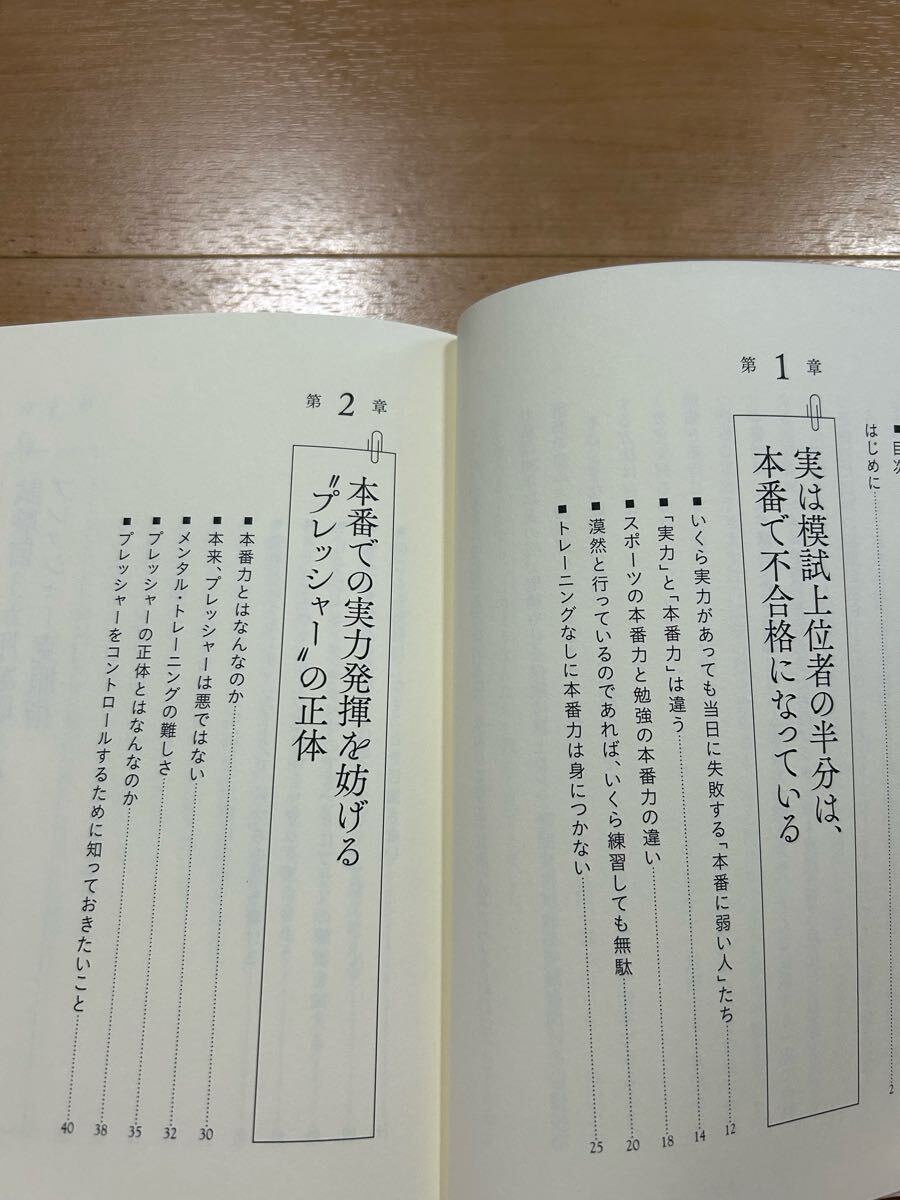 ■目次
はじめに 2
第1章
実は模試上位者の半分は、
本番で不合格になっている
■いくら実力があっても当日に失敗する「本番に弱い人」たち 12
■「実力」と「本番力」は違う 14
■スポーツの本番力と勉強の本番力の違い 18
■漠然と行っているのであれば、いくら練習しても無駄 20
■トレーニングなしに本番力は身につかない 25
第2章
本番での実力発揮を妨げる
〝プレッシャー〟の正体
■本番力とはなんなのか 30
■本来、プレッシャーは悪ではない 32
■メンタル・トレーニングの難しさ 35
■プレッシャーの正体とはなんなのか 38
■プレッシャーをコントロールするために知っておきたいこと 40